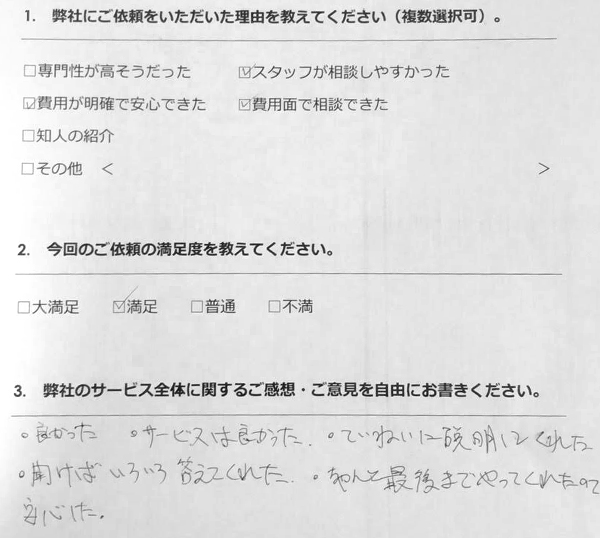 1. 弊社にご依頼をいただいた理由を教えてください（複数選択可）。
□専門性が高そうだった ☑スタッフが相談しやすかった
☑費用が明確で安心できた ☑費用面で相談できた
□知人の紹介
□その他 ＜ ＞
2. 今回のご依頼の満足度を教えてください。
□大満足 ☑満足 □普通 □不満
3. 弊社のサービス全体に関するご感想・ご意見を自由にお書きください。
・良かった ・サービスは良かった. ・ていねいに説明してくれた
・聞けばいろいろ答えてくれた. ・ちゃんと最後までやってくれたので
安心した.